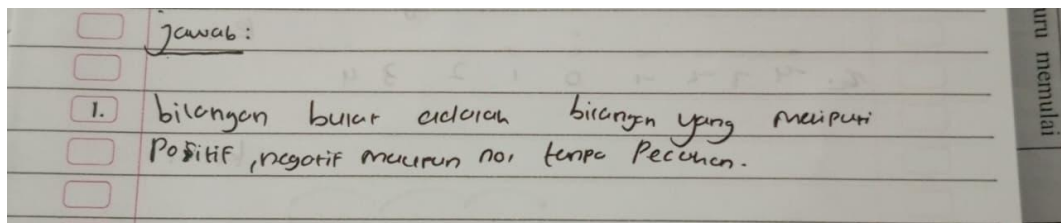 Jawab:
1. bilangan bular adalah bilangan yang meliputi
Positif, negatif maupun nol tanpa Pecahan.
uru memulai